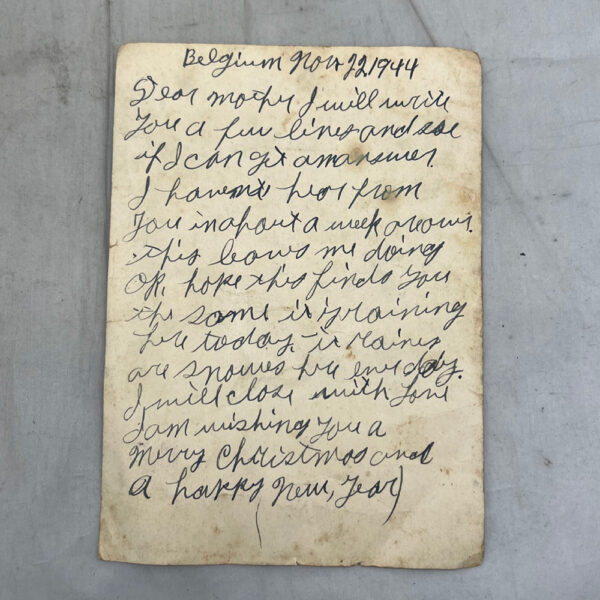 Belgium Nov 22 1944
Dear mother I will write
you a few lines and see
if I can get a manswer.
I havent hear from
you in about a week or
this leavs me doing
OK. hope this finds you
the same it is raining
here today. it raines
are snowes here ever day.
I will close with love
I am wishing you a
merry Christmas and
a happy New, Year)